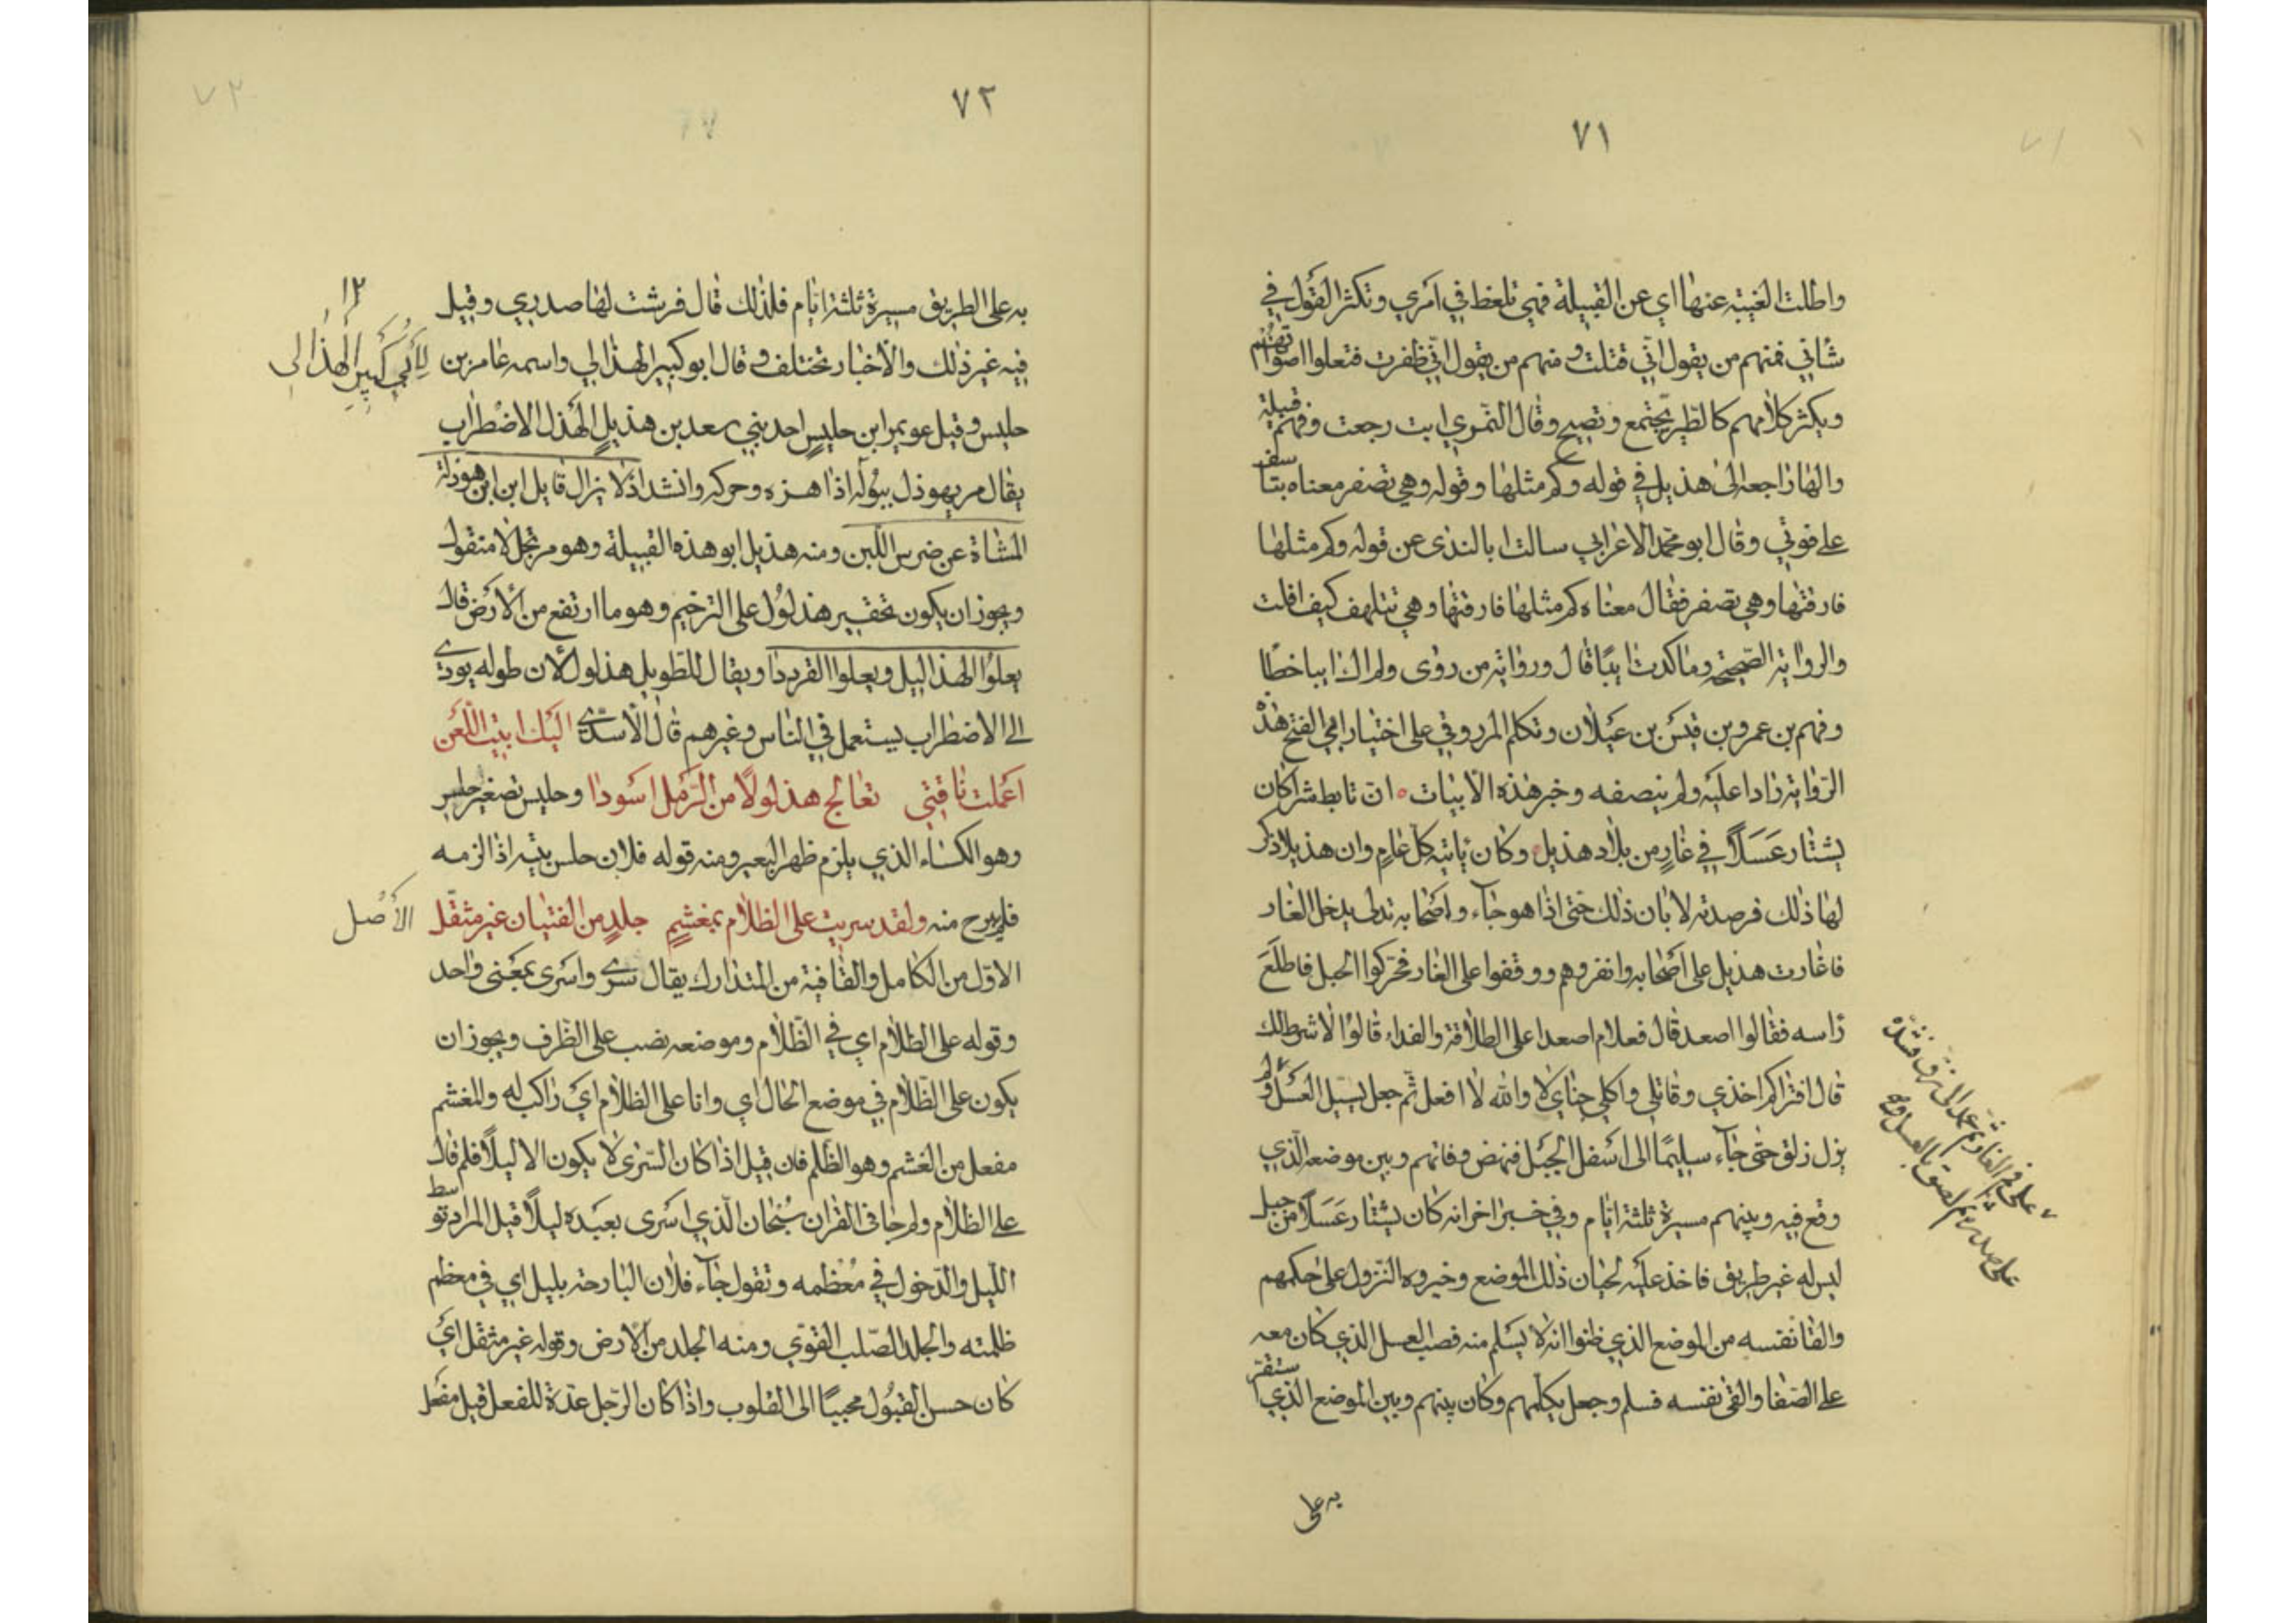 ٧١
واطلت الغيبة عنها اي عن القبيلة فهي تلغط في امري وتكثر القول في
شاني فمنهم من يقول اني قتلت ومنهم من يقول اني ظفرت فتعلوا اصواتهم
ويكثر كلامهم كالطير يجتمع وتصيح وقال النمري ابت رجعت وفهم قبيلة
والها راجعة الى هذيل في قوله وكم مثلها وقوله وهي تصفر معناه بتاسف
على فوتي وقال ابو محمد الاعرابي سالت ابا الندى عن قوله وكم مثلها
فارقتها وهي تصفر فقال معناه كم مثلها فارقتها وهي تتلهف كيف افلت
والرواية الصحيحة وما كدت ايبا قال ورواية من روى ولم اك ايبا خطا
وفهم بن عمرو بن قيس بن عيلان وتكلم المرزوقي على اختيار ابي الفتح هذه
الرواية رادا عليه ولم ينصفه وخبر هذه الابيات ان تابط شرا كان
يشتار عسلا في غار من بلاد هذيل وكان ياتيه كل عام وان هذيلا ذكر
لها ذلك فرصدته لابان ذلك حتى اذا هو جاء واصحابه تدلى يدخل الغار
فاغارت هذيل على اصحابه وانفروهم ووقفوا على الغار فحركوا الحبل فاطلع
راسه فقالوا اصعد قال فعلام اصعد اعلى الطلاقة والفداء قالوا لا شرط لك
قال افتراكم اخذي وقاتلي واكلي جناي لا والله لا افعل ثم جعل يسيل العسل ولم
يزل زلق حتى جاء سليما الى اسفل الجبل فنهض وفاتهم وبين موضعه الذي
وقع فيه وبينهم مسيرة ثلثة ايام وفي خبر اخر انه كان يشتار عسلا من جبل
ليس له غير طريق فاخذ عليه لحيان ذلك الموضع وخيروه النزول على حكمهم
والقا نفسه من الموضع الذي ظنوا انه لا يسلم منه فصب العسل الذي كان معه
على الصفا والقى نفسه فسلم وجعل يكلمهم وكان بينهم وبين الموضع الذي استقر
به على
٧٢
به على الطريق مسيرة ثلثة ايام فلذلك قال فرشت لها صدري وقيل
فيه غير ذلك والاخبار تختلف وقال ابو كبير الهذلي واسمه عامر بن
١٢
لأبي كبير الهذلي
حليس وقيل عويمر ابن حليس احد بني سعد بن هذيل الهذل الاضطراب
يقال مر يهوذل ببوله اذا هزه وحركه وانشد اذ لا يزال قايل ابن ابن هوذلة
المشاة عن ضرس اللبن ومنه هذيل ابو هذه القبيلة وهو مرتجل لا منقول
ويجوز ان يكون تحقير هذلول على الترخيم وهو ما ارتفع من الارض قال
يعلوا الهذاليل ويعلوا القرددا ويقال للطويل هذلول لان طوله يودي
الى الاضطراب يستعمل في الناس وغيرهم قال الاسدي اليك ابيت اللعن
اعملت ناقتي تعالج هذلولا من الرمل اسودا وحليس تصغير حلس
وهو الكساء الذي يلزم ظهر البعير ومنه قوله فلان حلس بيته اذا لزمه
فلم يبرح منه ولقد سريت على الظلام بمغشم جلد من الفتيان غير مثقل
الأصل
الاول من الكامل والقافية من المتدارك يقال سرى واسرى بمعنى واحد
وقوله على الظلام اي في الظلام وموضعه نصب على الظرف ويجوز ان
يكون على الظلام في موضع الحال اي وانا على الظلام اي راكب له والمغشم
مفعل من الغشم وهو الظلم فان قيل اذا كان السرى لا يكون الا ليلا فلم قال
على الظلام ولم جا في القران سبحان الذي اسرى بعبده ليلا قيل المراد توسط
الليل والدخول في معظمه وتقول جاء فلان البارحة بليل اي في معظم
ظلمته والجلد الصلب القوي ومنه الجلد من الارض وقوله غير مثقل اي
كان حسن القبول محببا الى القلوب واذا كان الرجل عدة للفعل قيل مفعل